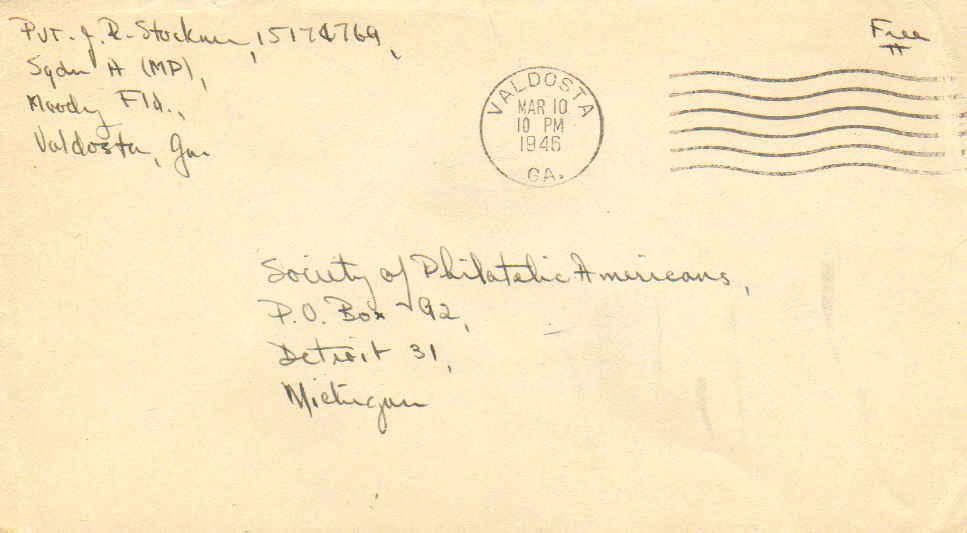 Pvt. J. R. Stockman, 15174769,
Sqdn A (MP),
Moody Fld.,
Valdosta, Ga.
Free
VALDOSTA
MAR 10
10 PM
1946
GA.
Society of Philatelic Americans,
P.O. Box 92,
Detroit 31,
Michigan